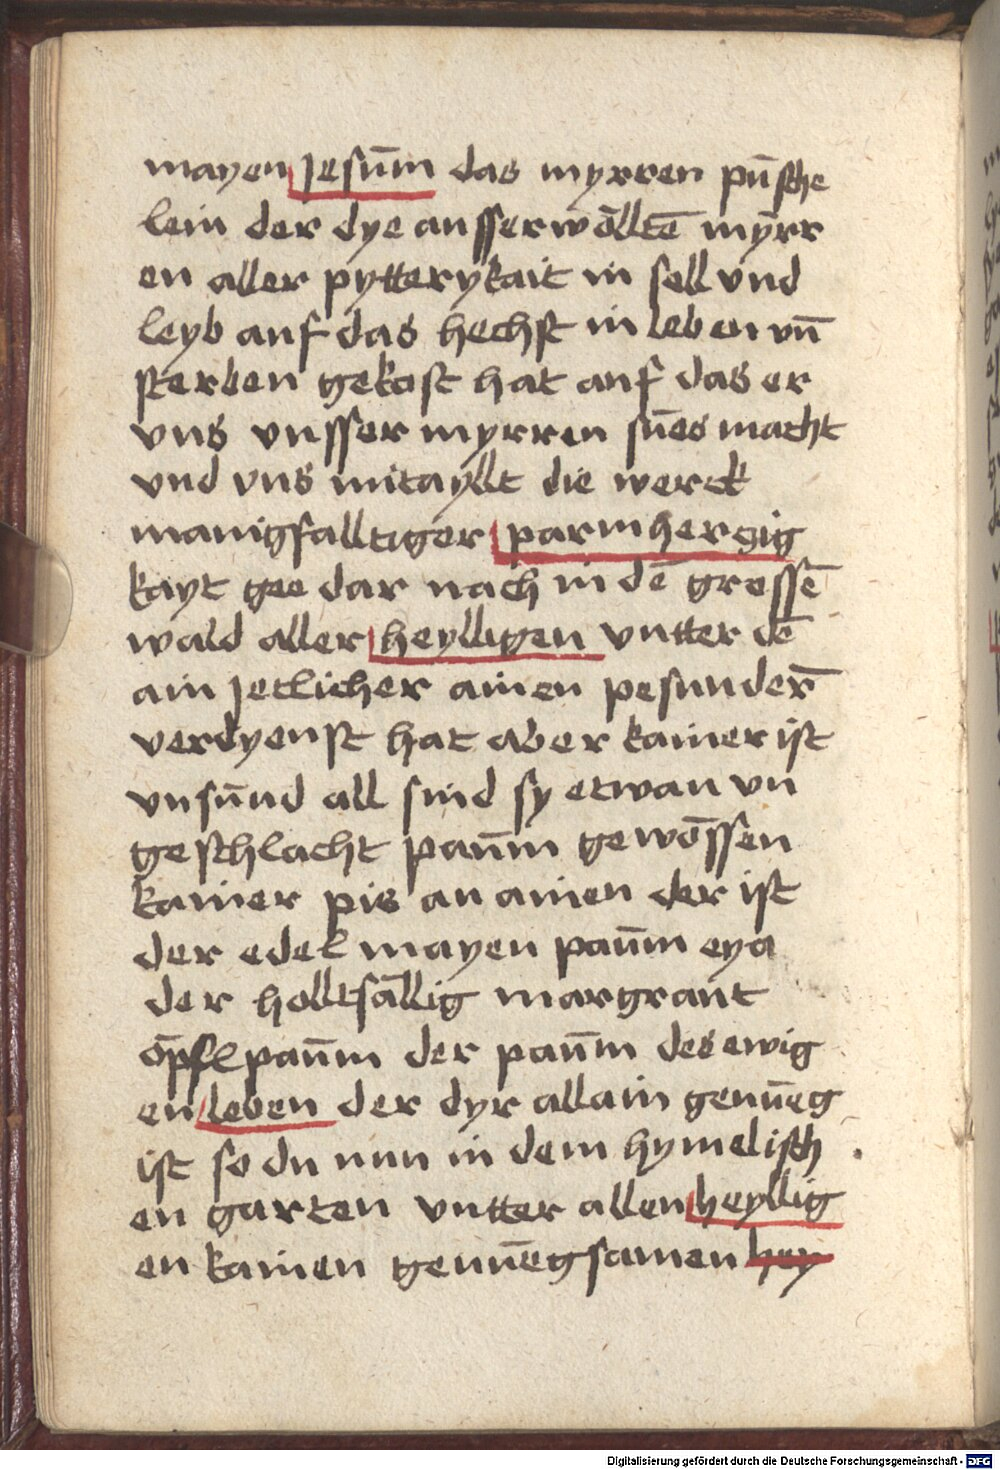 mayen Jesum̄ das myrren pu̅sche
lein der dye ausserwöllte̅ myrr
en aller pytterykait in sell vnd
leyb auf das hechst in leben vn̅
sterben gekost hat auf das er
vns vnsser myrren su̅es macht
vnd vns mitayllt die werck
manigfalltiger parmhertzig
kayt gee dar nach in de̅ grossen̅
wald aller heylligen vntter de̅
ain Jetlicher ainen pesunder̅
verdyenst hat aber kainer ist
vnsu̅nd all sind sy etwan vn
geschlacht pau̅m gewo̅ssen
kainer pis an ainen der ist
der edel mayen pau̅m eya
der holltsa̅llig margrant
o̅pflpau̅m der pau̅m des ewig
en leben der dyr allain genu̅eg
ist so du nun in dem hymelisch
en garten vntter allen heyllig
en kainen genu̅egsamen hey
Digitalisierung gefördert durch die Deutsche Forschungsgemeinschaft - DFG